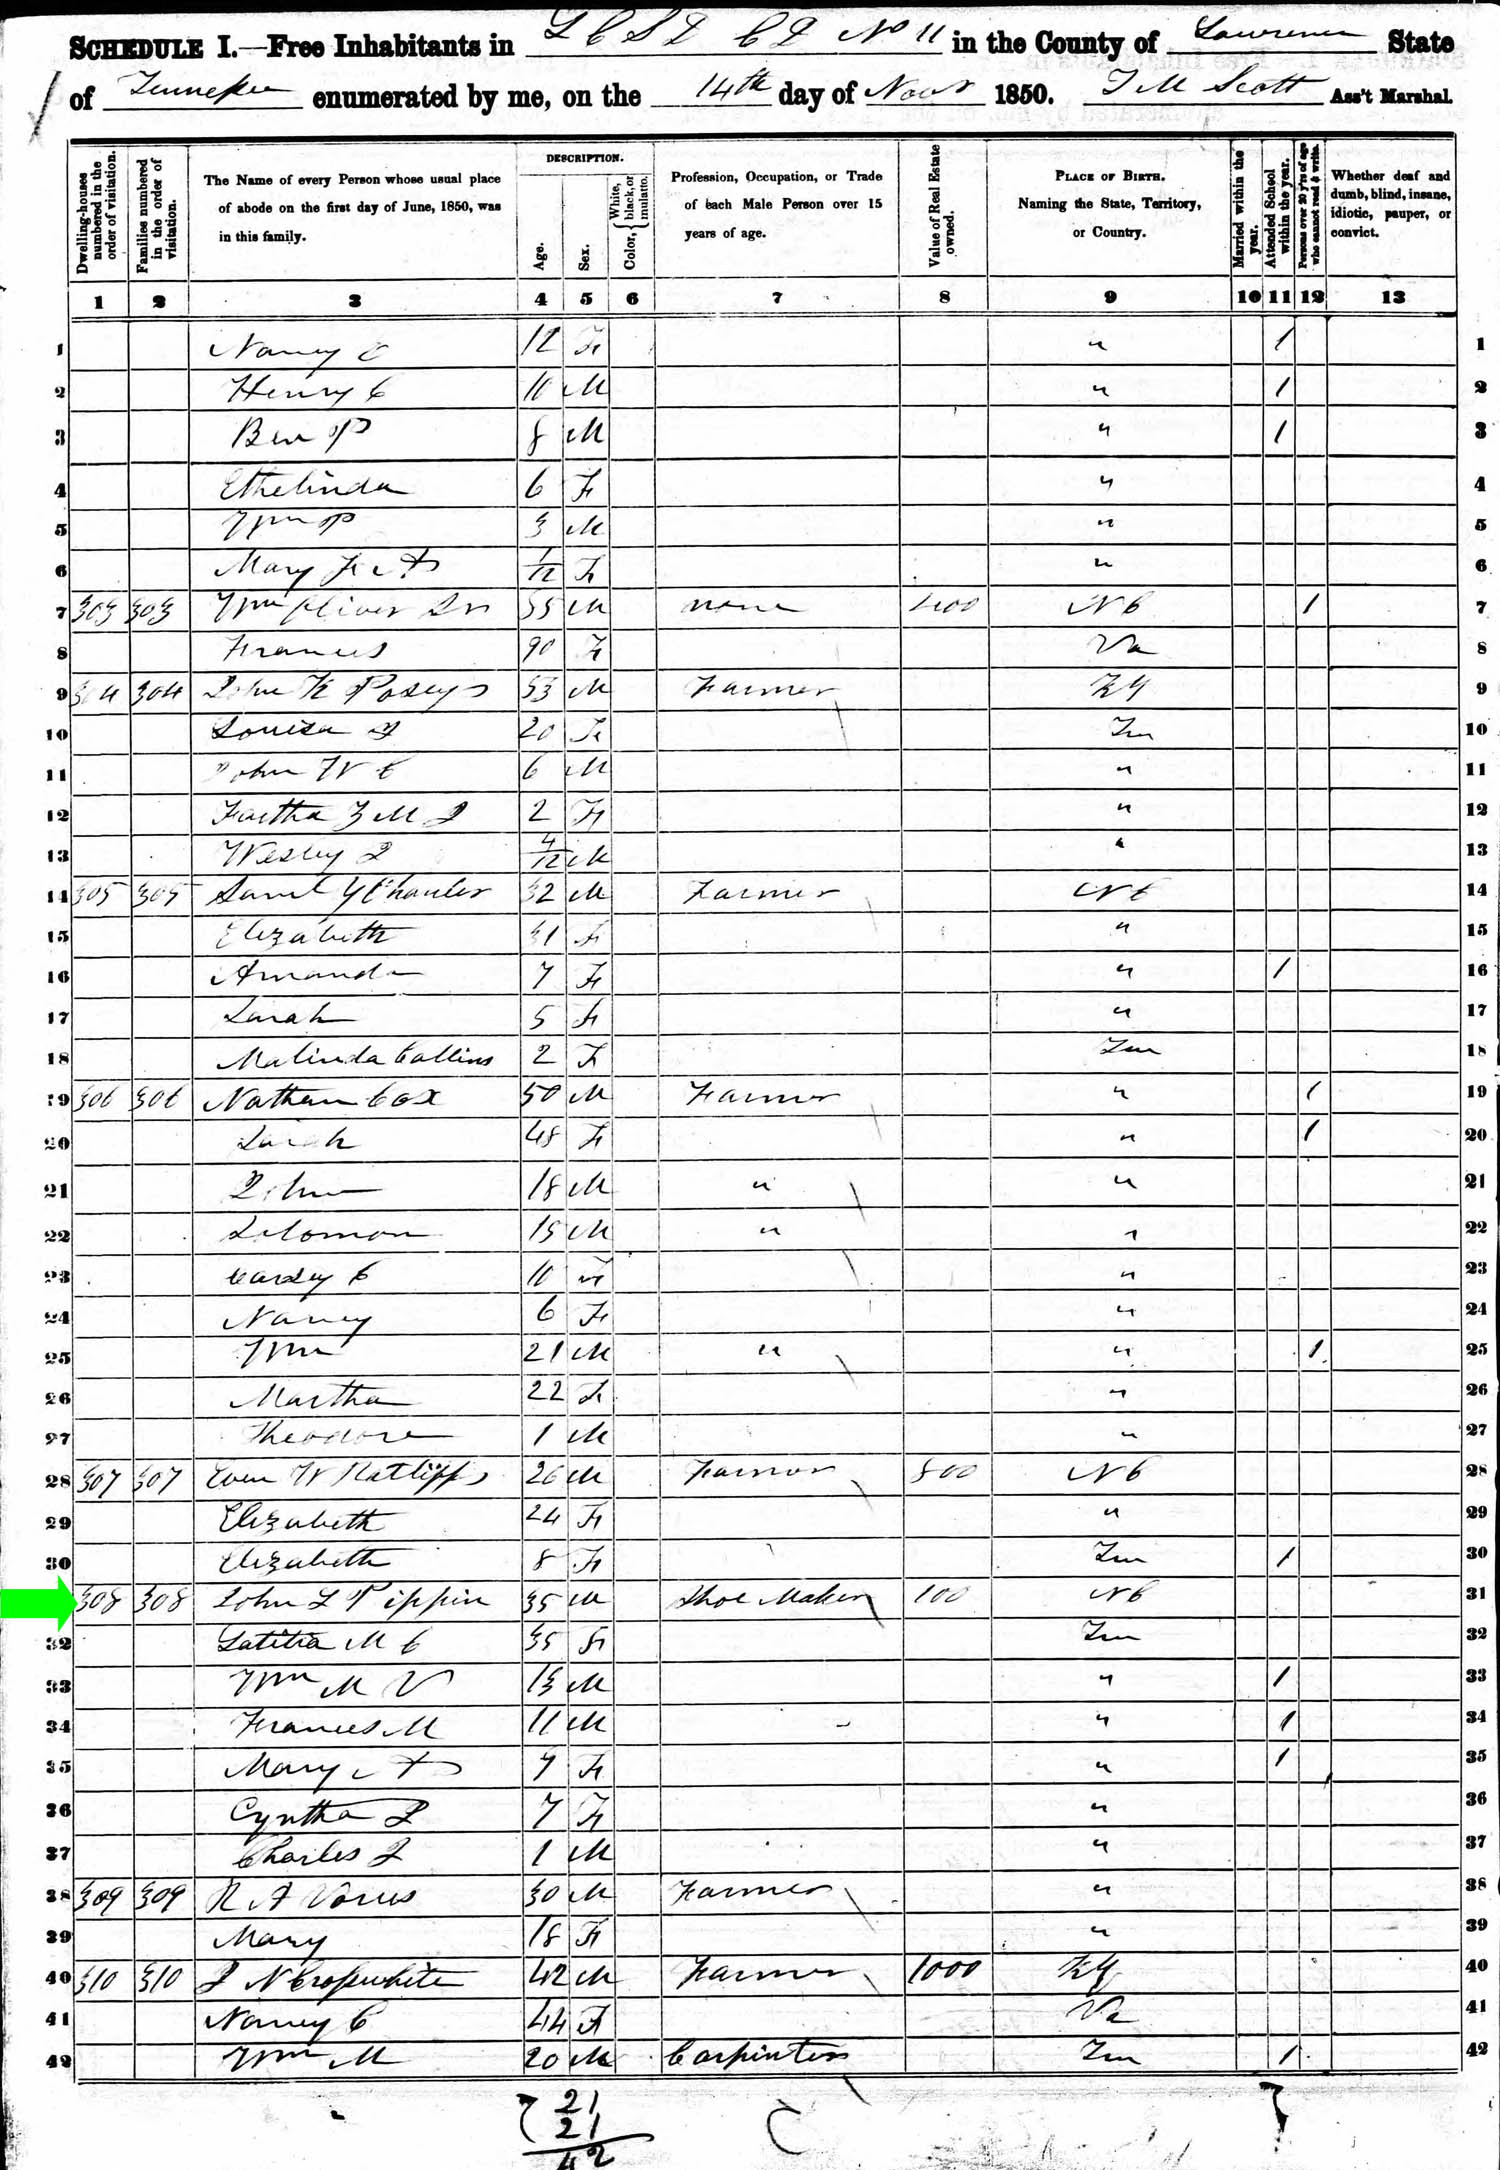 SCHEDULE I.—Free Inhabitants in L C S D C D No 11 in the County of Lawrence State
of Tennessee enumerated by me, on the 14th day of Novr 1850. T M Scott Ass't Marshal.
Dwelling-houses numbered in the order of visitation.
Families numbered in the order of visitation.
The Name of every Person whose usual place of abode on the first day of June, 1850, was in this family.
DESCRIPTION.
Age.
Sex.
Color, { White, black, or mulatto.
Profession, Occupation, or Trade of each Male Person over 15 years of age.
Value of Real Estate owned.
PLACE OF BIRTH. Naming the State, Territory, or Country.
Married within the year.
Attended School within the year.
Persons over 20 y'rs of age who cannot read & write.
Whether deaf and dumb, blind, insane, idiotic, pauper, or convict.
1 2 3 4 5 6 7 8 9 10 11 12 13
1 Nancy C 12 F " 1 1
2 Henry C 10 M " 1 2
3 Ben P 8 M " 1 3
4 Ethelinda 6 F " 4
5 Wm P 3 M " 5
6 Mary F A 1/12 F " 6
7 303 303 Wm Oliver Sr 55 M none 400 N C 1 7
8 Frances 90 F Va 8
9 304 304 John K Posey 53 M Farmer KY 9
10 Louisa J 20 F Tn 10
11 John W C 6 M " 11
12 Z M J 2 F " 12
13 Wesley J 4/12 M " 13
14 305 305 Saml Y 32 M Farmer N C 14
15 Elizabeth 31 F " 15
16 Amanda 7 F " 1 16
17 Sarah 5 F " 17
18 Malinda Collins 2 F Tn 18
19 306 306 Nathan Cox 50 M Farmer " 1 19
20 Sarah 48 F " 1 20
21 John 18 M " " 21
22 Solomon 15 M " " 22
23 C 10 F " 23
24 Nancy 6 F " 24
25 Wm 21 M " " 1 25
26 Martha 22 F " 26
27 Theodore 1 M " 27
28 307 307 Even W Ratliff 26 M Farmer 800 N C 28
29 Elizabeth 24 F " 29
30 Elizabeth 8 F Tn 1 30
31 308 308 John L Pippin 35 M Shoe Maker 100 N C 31
32 Latitia M C 35 F Tn 32
33 Wm M V 13 M " 1 33
34 Frances M 11 M " 1 34
35 Mary A 9 F " 1 35
36 Cyntha J 7 F " 36
37 Charles J 1 M " 37
38 309 309 R A Vorus 30 M Farmer " 38
39 Mary 18 F " 39
40 310 310 J N Crosswhite 42 M Farmer 1000 KY 40
41 Nancy C 44 F Va 41
42 Wm M 20 M Carpinter Tn 1 42
21
21
42